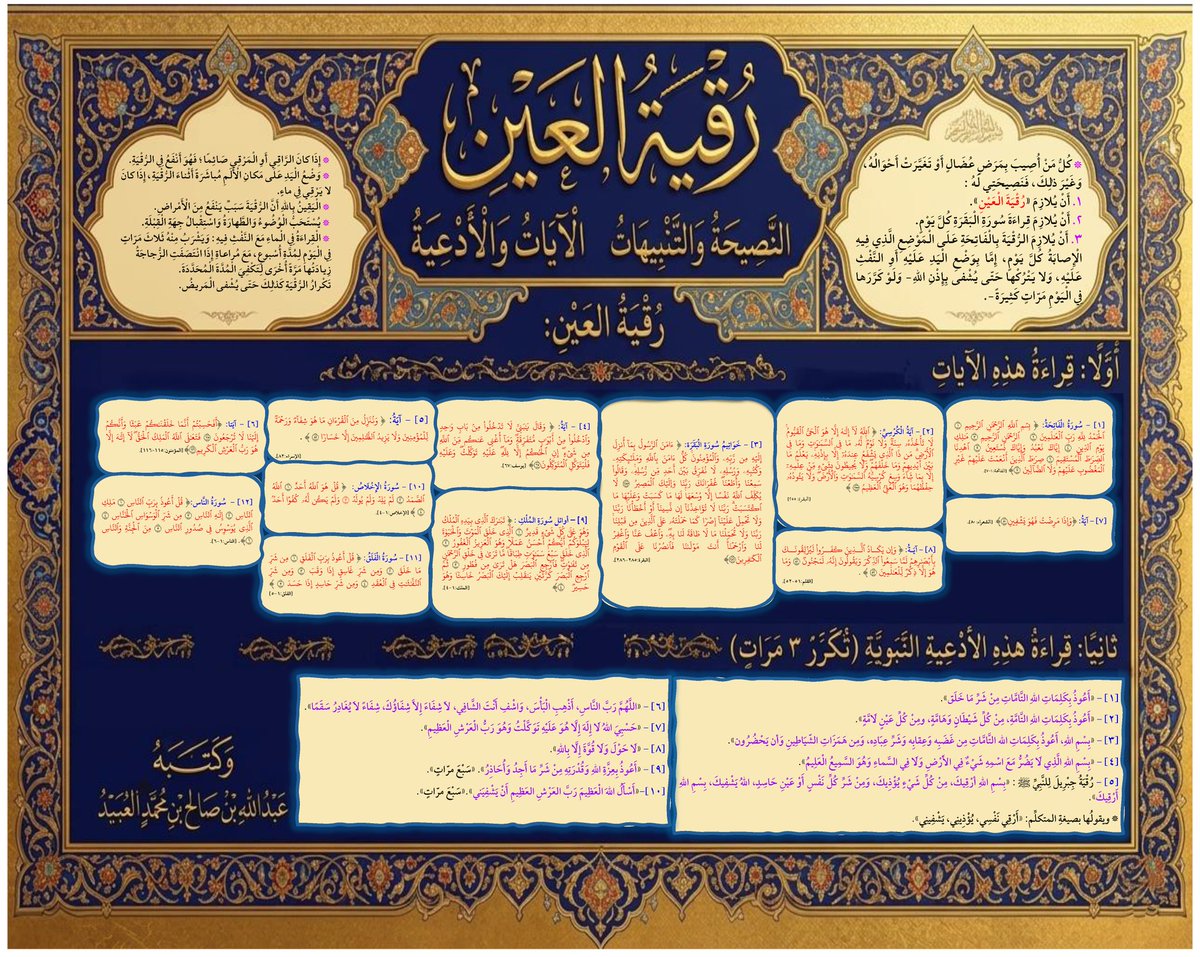 رُقْيَةُ العَيْنِ
النَّصِيحَةُ وَالتَّنْبِيهَاتُ الْآيَاتُ وَالْأَدْعِيَةُ
* كُلُّ مَنْ أُصِيبَ بِمَرَضٍ عُضَالٍ أَوْ تَغَيَّرَتْ أَحْوَالُهُ،
وَغَيْرَ ذلِكَ، فَنَصِيحَتِي لَهُ :
١. أَنْ يُلَازِمَ «رُقْيَةَ الْعَيْنِ».
٢. أَنْ يُلَازِمَ قِرَاءَةَ سُورَةِ الْبَقَرَةِ كُلَّ يَوْمٍ.
٣. أَنْ يُلَازِمَ الرُّقْيَةَ بِالْفَاتِحَةِ عَلَى الْمَوْضِعِ الَّذِي فِيهِ
الإِصَابَةُ كُلَّ يَوْمٍ، إِمَّا بِوَضْعِ الْيَدِ عَلَيْهِ أَوِ النَّفْثِ
عَلَيْهِ، وَلَا يَتْرُكْهَا حَتَّى يُشْفَى بِإِذْنِ اللهِ- وَلَوْ كَرَّرَهَا
فِي الْيَوْمِ مَرَّاتٍ كَثِيرَةً-.
* إِذَا كَانَ الرَّاقِي أَوِ الْمَرْقِي صَائِمًا؛ فَهُوَ أَنْفَعُ فِي الرُّقْيَةِ.
* وَضْعُ الْيَدِ عَلَى مَكَانِ الأَلَمِ مُبَاشَرَةً أَثْنَاءَ الرُّقْيَةِ، إِذَا كَانَ
لَا يَرْقِي فِي مَاءٍ.
* الْيَقِينُ بِاللهِ أَنَّ الرُّقْيَةَ سَبَبٌ يَنْفَعُ مِنَ الأَمْرَاضِ.
* يُسْتَحَبُّ الْوُضُوءُ وَالطَّهَارَةُ وَاسْتِقْبَالُ جِهَةِ الْقِبْلَةِ.
* الْقِرَاءَةُ فِي الْمَاءِ مَعَ النَّفْثِ فِيهِ: وَيَشْرَبُ مِنْهُ ثَلَاثَ مَرَّاتٍ
فِي الْيَوْمِ لِمُدَّةِ أُسْبُوعٍ، مَعَ مُرَاعَاةِ إِذَا انْتَصَفَتِ الزُّجَاجَةُ
زِيَادَتُهَا مَرَّةً أُخْرَى لِتَكْفِيَ الْمُدَّةَ الْمُحَدَّدَةَ.
تَكْرَارُ الرُّقْيَةِ كَذلِكَ حَتَّى يُشْفَى الْمَرِيضُ.
رُقْيَةُ العَيْنِ:
أَوَّلًا: قِرَاءَةُ هذِهِ الآيَاتِ
[١] - سُورَةُ الْفَاتِحَةُ: ﴿ بِسْمِ اللَّهِ الرَّحْمَٰنِ الرَّحِيمِ ١
الْحَمْدُ لِلَّهِ رَبِّ الْعَالَمِينَ ٢ الرَّحْمَٰنِ الرَّحِيمِ ٣ مَالِكِ
يَوْمِ الدِّينِ ٤ إِيَّاكَ نَعْبُدُ وَإِيَّاكَ نَسْتَعِينُ ٥ اهْدِنَا
الصِّرَاطَ الْمُسْتَقِيمَ ٦ صِرَاطَ الَّذِينَ أَنْعَمْتَ عَلَيْهِمْ غَيْرِ
الْمَغْضُوبِ عَلَيْهِمْ وَلَا الضَّالِّينَ ٧﴾ [الفاتحة:١-٧].
[٢] - آيَةُ الْكُرْسِيِّ: ﴿ اللَّهُ لَا إِلَٰهَ إِلَّا هُوَ الْحَيُّ الْقَيُّومُ
لَا تَأْخُذُهُ سِنَةٌ وَلَا نَوْمٌ لَّهُ مَا فِي السَّمَاوَاتِ وَمَا فِي
الْأَرْضِ مَن ذَا الَّذِي يَشْفَعُ عِندَهُ إِلَّا بِإِذْنِهِ يَعْلَمُ مَا
بَيْنَ أَيْدِيهِمْ وَمَا خَلْفَهُمْ وَلَا يُحِيطُونَ بِشَيْءٍ مِّنْ عِلْمِهِ
إِلَّا بِمَا شَاءَ وَسِعَ كُرْسِيُّهُ السَّمَاوَاتِ وَالْأَرْضَ وَلَا يَئُودُهُ
حِفْظُهُمَا وَهُوَ الْعَلِيُّ الْعَظِيمُ ﴾
[البقرة: ٢٥٥].
[٣] - خَوَاتِيمُ سُورَةِ الْبَقَرَةِ: ﴿ آمَنَ الرَّسُولُ بِمَا أُنزِلَ
إِلَيْهِ مِن رَّبِّهِ وَالْمُؤْمِنُونَ كُلٌّ آمَنَ بِاللَّهِ وَمَلَائِكَتِهِ
وَكُتُبِهِ وَرُسُلِهِ لَا نُفَرِّقُ بَيْنَ أَحَدٍ مِّن رُّسُلِهِ وَقَالُوا
سَمِعْنَا وَأَطَعْنَا غُفْرَانَكَ رَبَّنَا وَإِلَيْكَ الْمَصِيرُ ٢٨٥ لَا
يُكَلِّفُ اللَّهُ نَفْسًا إِلَّا وُسْعَهَا لَهَا مَا كَسَبَتْ وَعَلَيْهَا مَا
اكْتَسَبَتْ رَبَّنَا لَا تُؤَاخِذْنَا إِن نَّسِينَا أَوْ أَخْطَأْنَا رَبَّنَا
وَلَا تَحْمِلْ عَلَيْنَا إِصْرًا كَمَا حَمَلْتَهُ عَلَى الَّذِينَ مِن قَبْلِنَا
رَبَّنَا وَلَا تُحَمِّلْنَا مَا لَا طَاقَةَ لَنَا بِهِ وَاعْفُ عَنَّا وَاغْفِرْ لَنَا
وَارْحَمْنَا أَنتَ مَوْلَانَا فَانصُرْنَا عَلَى الْقَوْمِ
الْكَافِرِينَ﴾ [البقرة:٢٨٥-٢٨٦].
[٤] - آيَةُ: ﴿ وَقَالَ يَا بَنِيَّ لَا تَدْخُلُوا مِن بَابٍ وَاحِدٍ
وَادْخُلُوا مِنْ أَبْوَابٍ مُّتَفَرِّقَةٍ وَمَا أُغْنِي عَنكُم مِّنَ اللَّهِ
مِن شَيْءٍ إِنِ الْحُكْمُ إِلَّا لِلَّهِ عَلَيْهِ تَوَكَّلْتُ وَعَلَيْهِ
فَلْيَتَوَكَّلِ الْمُتَوَكِّلُونَ﴾ [يوسف:٦٧].
[٥] - آيَةُ: ﴿ وَنُنَزِّلُ مِنَ الْقُرْآنِ مَا هُوَ شِفَاءٌ وَرَحْمَةٌ
لِّلْمُؤْمِنِينَ وَلَا يَزِيدُ الظَّالِمِينَ إِلَّا خَسَارًا ﴾.
[الإسراء:٨٢].
[٦] - آيَتا: ﴿أَفَحَسِبْتُمْ أَنَّمَا خَلَقْنَاكُمْ عَبَثًا وَأَنَّكُمْ
إِلَيْنَا لَا تُرْجَعُونَ ١١٥ فَتَعَالَى اللَّهُ الْمَلِكُ الْحَقُّ لَا إِلَٰهَ إِلَّا
هُوَ رَبُّ الْعَرْشِ الْكَرِيمِ﴾ [المؤمنون:١١٥-١١٦].
[٧] - آيَةُ: ﴿وَإِذَا مَرِضْتُ فَهُوَ يَشْفِينِ﴾ [الشعراء: ٨٠].
[٨] - آيَةُ: ﴿ وَإِن يَكَادُ الَّذِينَ كَفَرُوا لَيُزْلِقُونَكَ
بِأَبْصَارِهِمْ لَمَّا سَمِعُوا الذِّكْرَ وَيَقُولُونَ إِنَّهُ لَمَجْنُونٌ ٥١ وَمَا
هُوَ إِلَّا ذِكْرٌ لِّلْعَالَمِينَ ﴾
[القلم:٥١-٥٢].
[٩] - أَوَائِلُ سُورَةِ الْمُلْكِ : ﴿ تَبَارَكَ الَّذِي بِيَدِهِ الْمُلْكُ
وَهُوَ عَلَىٰ كُلِّ شَيْءٍ قَدِيرٌ ١ الَّذِي خَلَقَ الْمَوْتَ وَالْحَيَاةَ
لِيَبْلُوَكُمْ أَيُّكُمْ أَحْسَنُ عَمَلًا وَهُوَ الْعَزِيزُ الْغَفُورُ ٢
الَّذِي خَلَقَ سَبْعَ سَمَاوَاتٍ طِبَاقًا مَّا تَرَىٰ فِي خَلْقِ الرَّحْمَٰنِ
مِن تَفَاوُتٍ فَارْجِعِ الْبَصَرَ هَلْ تَرَىٰ مِن فُطُورٍ ٣ ثُمَّ
ارْجِعِ الْبَصَرَ كَرَّتَيْنِ يَنقَلِبْ إِلَيْكَ الْبَصَرُ خَاسِئًا وَهُوَ
حَسِيرٌ ٤﴾ [الملك:١-٤].
[١٠] - سُورَةُ الإِخْلَاصُ: ﴿ قُلْ هُوَ اللَّهُ أَحَدٌ ١ اللَّهُ
الصَّمَدُ ٢ لَمْ يَلِدْ وَلَمْ يُولَدْ ٣ وَلَمْ يَكُن لَّهُ كُفُوًا أَحَدٌ
٤﴾ [الإخلاص:١-٤].
[١١] - سُورَةُ الْفَلَقُ: ﴿ قُلْ أَعُوذُ بِرَبِّ الْفَلَقِ ١ مِن شَرِّ
مَا خَلَقَ ٢ وَمِن شَرِّ غَاسِقٍ إِذَا وَقَبَ ٣ وَمِن شَرِّ
النَّفَّاثَاتِ فِي الْعُقَدِ ٤ وَمِن شَرِّ حَاسِدٍ إِذَا حَسَدَ ٥﴾
[الفلق:١-٥].
[١٢] - سُورَةُ النَّاسُ: ﴿ قُلْ أَعُوذُ بِرَبِّ النَّاسِ ١ مَلِكِ
النَّاسِ ٢ إِلَٰهِ النَّاسِ ٣ مِن شَرِّ الْوَسْوَاسِ الْخَنَّاسِ ٤
الَّذِي يُوَسْوِسُ فِي صُدُورِ النَّاسِ ٥ مِنَ الْجِنَّةِ وَالنَّاسِ
٦﴾ [الناس:١-٦].
ثَانِيًا: قِرَاءَةُ هذِهِ الأَدْعِيَةِ النَّبَوِيَّةِ (تُكَرَّرُ ٣ مَرَاتٍ)
[١] - «أَعُوذُ بِكَلِمَاتِ اللهِ التَّامَّاتِ مِنْ شَرِّ مَا خَلَقَ».
[٢] - «أَعُوذُ بِكَلِمَاتِ اللهِ التَّامَّةِ، مِنْ كُلِّ شَيْطَانٍ وَهَامَّةٍ، وَمِنْ كُلِّ عَيْنٍ لَامَّةٍ».
[٣] - «بِسْمِ اللهِ، أَعُوذُ بِكَلِمَاتِ اللهِ التَّامَّاتِ مِن غَضَبِهِ وَعِقَابِهِ وَشَرِّ عِبَادِهِ، وَمِن هَمَزَاتِ الشَّيَاطِينِ وَأَن يَحْضُرُون».
[٤] - «بِسْمِ اللهِ الَّذِي لَا يَضُرُّ مَعَ اسْمِهِ شَيْءٌ فِي الأَرْضِ وَلَا فِي السَّمَاءِ وَهُوَ السَّمِيعُ الْعَلِيمُ».
[٥] - رُقْيَةُ جِبْرِيلَ لِلنَّبِيِّ ﷺ : «بِسْمِ اللهِ أَرْقِيكَ، مِنْ كُلِّ شَيْءٍ يُؤْذِيكَ، وَمِنْ شَرِّ كُلِّ نَفْسٍ أَوْ عَيْنِ حَاسِدٍ، اللهُ يَشْفِيكَ، بِسْمِ اللهِ
أَرْقِيكَ».
* ويقولُها بصيغةِ المتكلِّم: «أَرْقِي نَفْسِي، يُؤْذِينِي، يَشْفِينِي».
[٦] - «اللَّهُمَّ رَبَّ النَّاسِ، أَذْهِبِ الْبَأْسَ، وَاشْفِ أَنْتَ الشَّافِي، لَا شِفَاءَ إِلاَّ شِفَاؤُكَ، شِفَاءً لَا يُغَادِرُ سَقَمًا».
[٧] - «حَسْبِيَ اللهُ لَا إِلَهَ إِلَّا هُوَ عَلَيْهِ تَوَكَّلْتُ وَهُوَ رَبُّ الْعَرْشِ الْعَظِيمِ».
[٨] - «لَا حَوْلَ وَلَا قُوَّةَ إِلَّا بِاللهِ».
[٩] - «أَعُوذُ بِعِزَّةِ اللهِ وَقُدْرَتِهِ مِنْ شَرِّ مَا أَجِدُ وَأُحَاذِرُ». «سَبْعَ مَرّاتٍ».
[١٠] - «أَسْأَلُ اللهَ الْعَظِيمَ رَبَّ الْعَرْشِ الْعَظِيمِ أَنْ يَشْفِيَنِي». «سَبْعَ مَرّاتٍ».
وَكَتَبَهُ
عَبْدُ اللهِ بنِ صَالِحِ بنِ مُحَمَّدٍ العُبَيْدُ